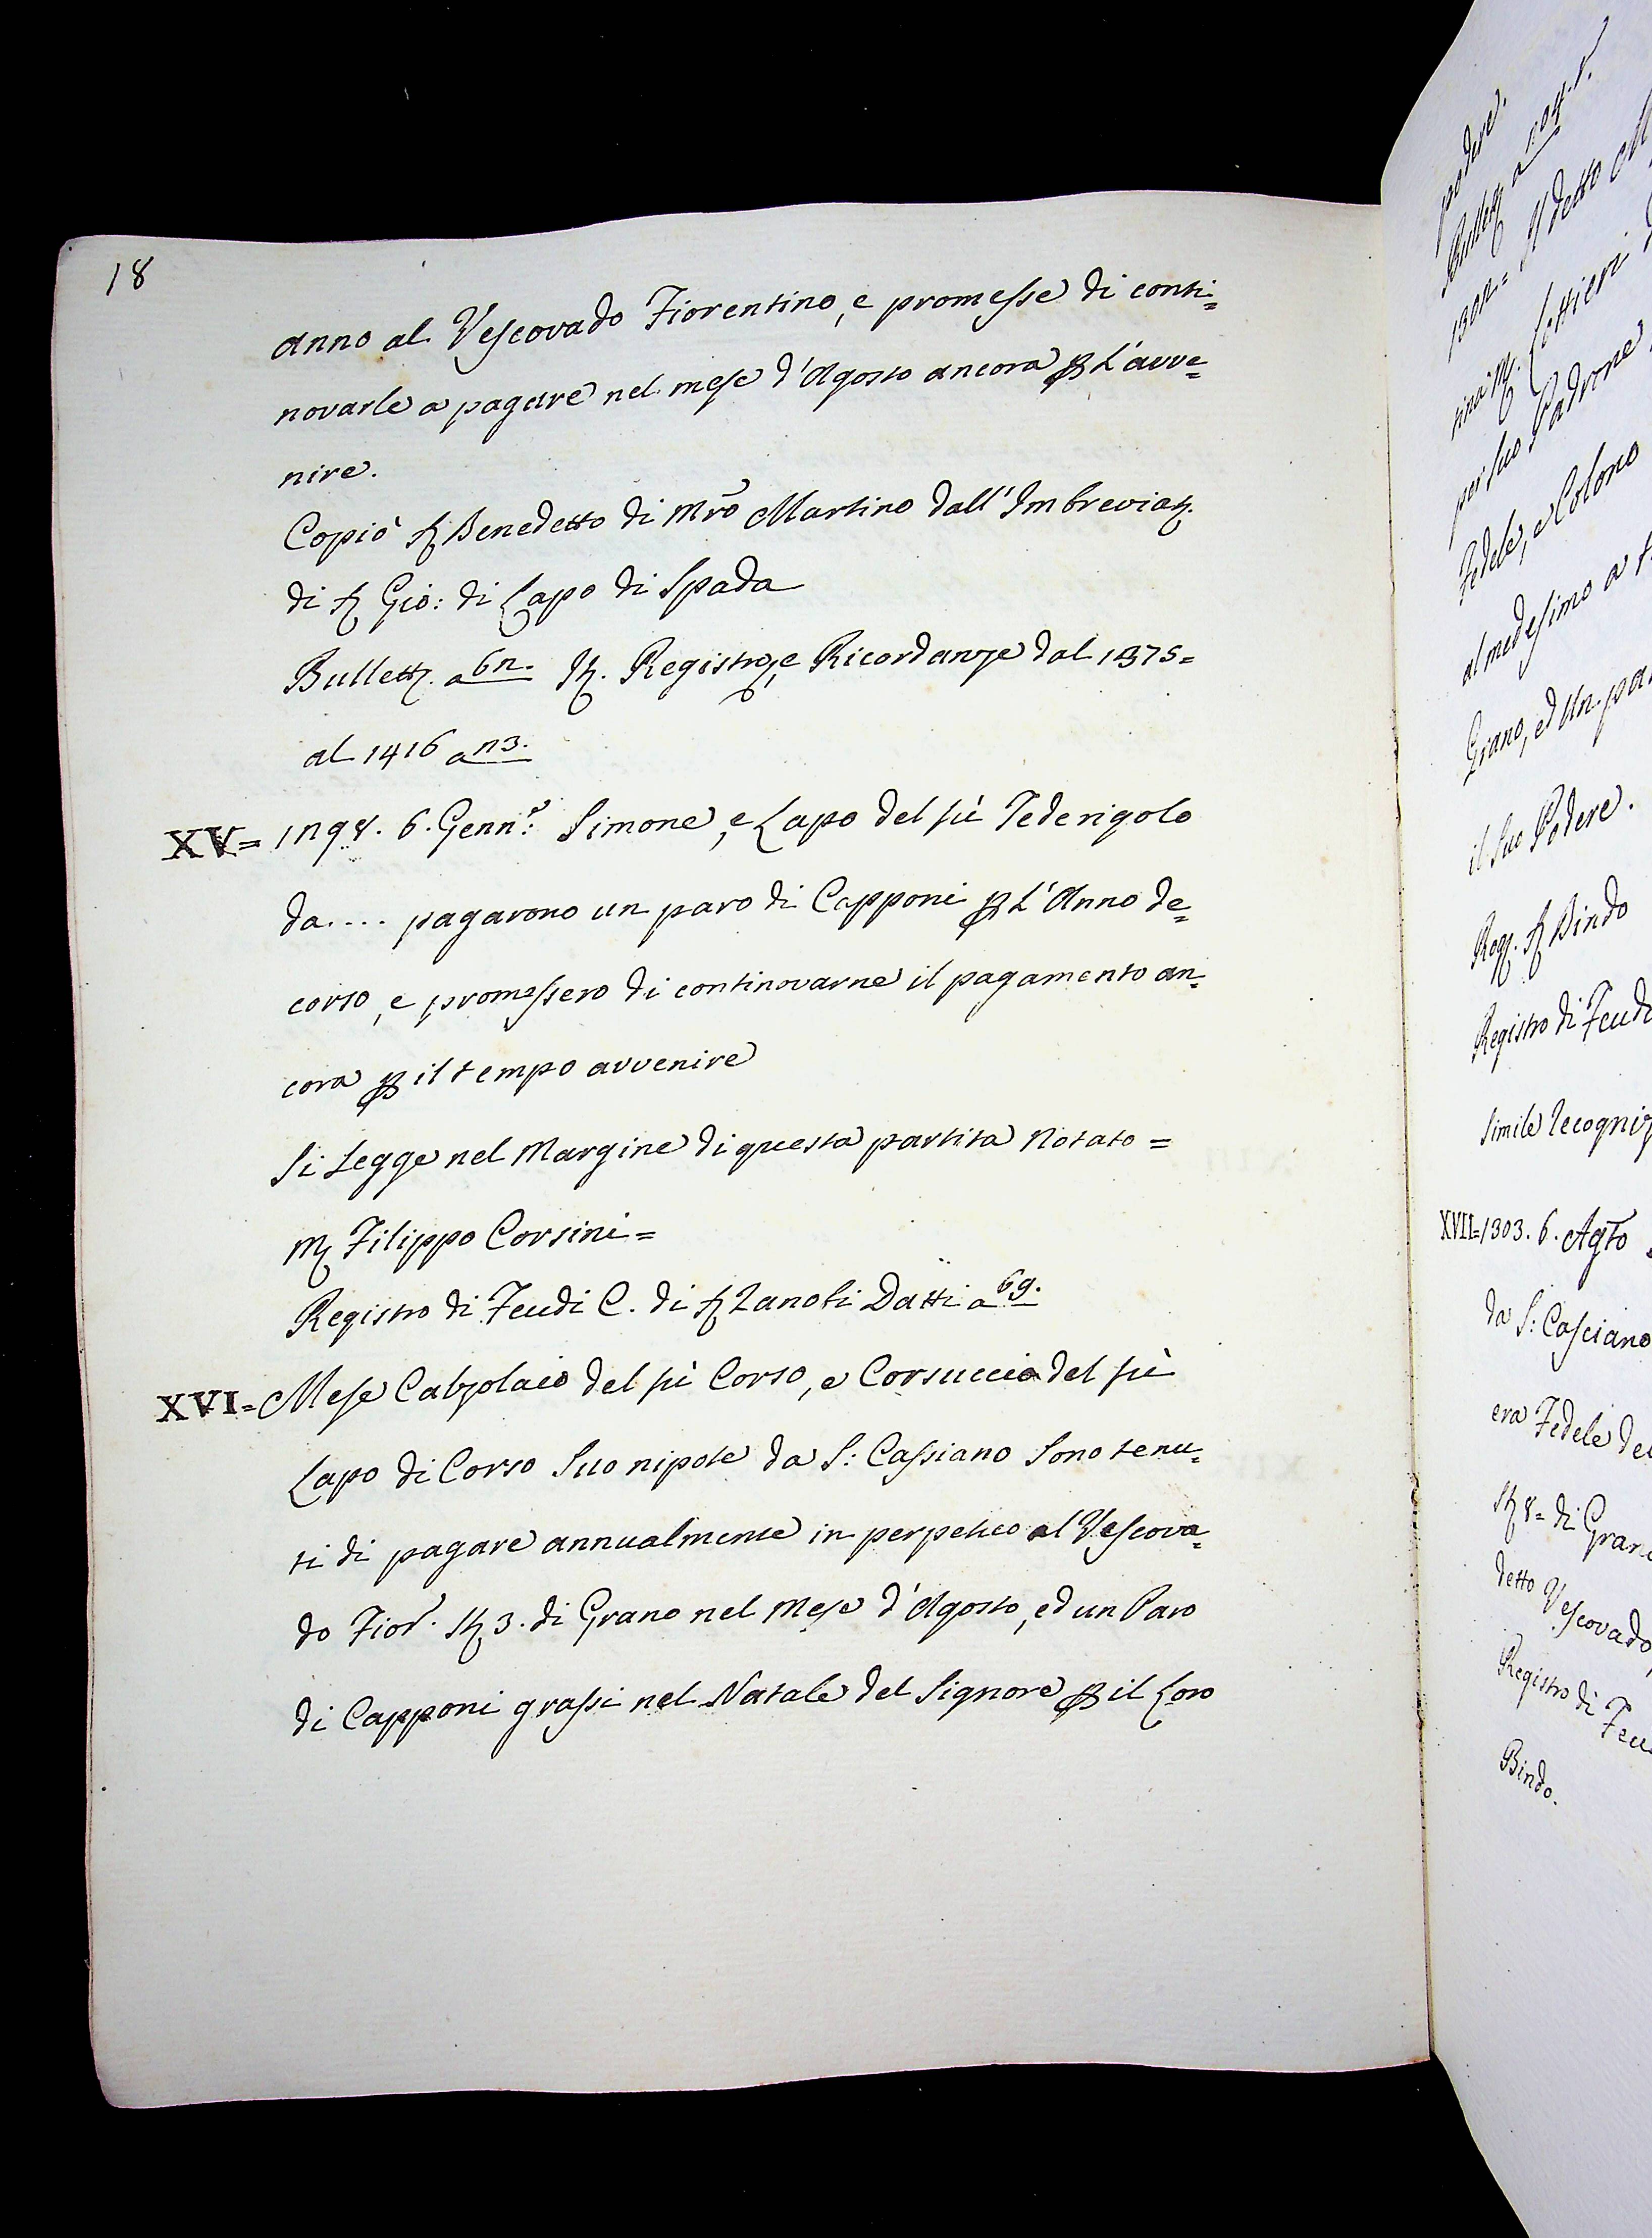 18
anno al Vescovado Fiorentino, e promesse di conti=
novarle a pagare nel mese d'Agosto ancora p L'avve=
nire.
Copiò Benedetto di Mro Martino dall'Imbreviaz.
di Gio: di Lapo di Spada
Bullett. a 62. It. Registro, e Ricordanze dal 1375=
al 1416 a 23.
XV= 1298. 6. Genn.o: Simone, e Lapo del fù Federigolo
da.... pagarono un paro di Capponi p L'Anno de=
corso, e promessero di continovarne il pagamento an=
cora p il tempo avvenire
Si Legge nel Margine di questa partita Notato =
M Filippo Corsini =
Registro di Feudi C. di Zanobi Datti a 69.
XVI= Mese Calzolaio del fù Corso, e Corsuccio del fù
Lapo di Corso Suo nipote da S: Cassiano Sono tenu=
ti di pagare annualmente in perpetuo al Vescova=
do Fior. St 3. di Grano nel Mese d'Agosto, ed un Paro
di Capponi grassi nel Natale del Signore p il Loro
podere.
Bullett. a 104. t.
1302= Il detto
Lottieri
per suo Padrone
Fedele, e Colono
al medesimo a
Grano, ed Un pa
il Suo Podere.
Rog. Bindo
Registro di Feudi
Simile recogniz
XVII= 1303. 6. Agto
da S: Casciano
era Fedele del
St 8= di Grano
detto Vescovado,
Registro di Feu
Bindo.